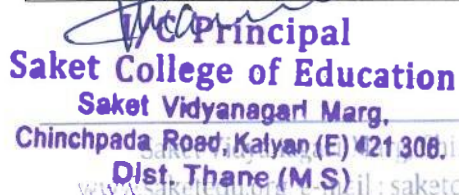 I/C Principal
Saket College of Education
Saket Vidyanagari Marg,
Chinchpada Road, Kalyan (E) 421 306.
Dist. Thane (M.S)